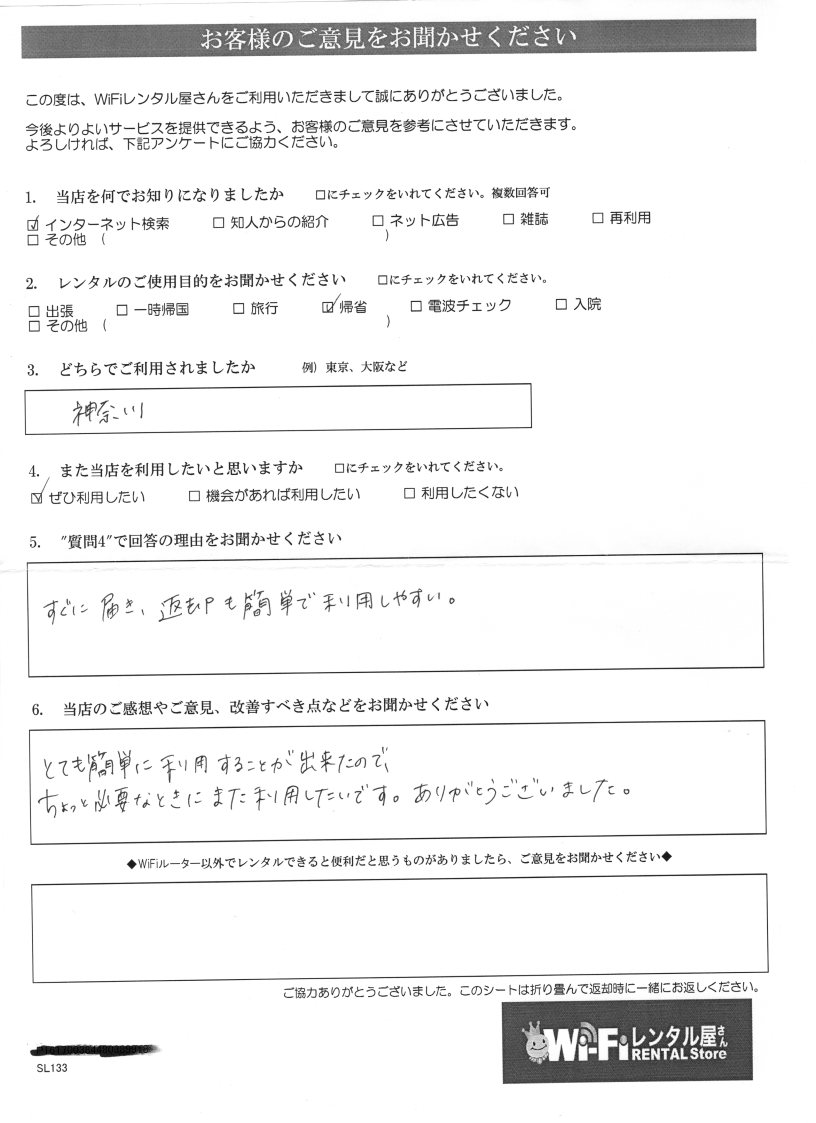 お客様のご意見をお聞かせください
この度は、WiFiレンタル屋さんをご利用いただきまして誠にありがとうございました。
今後よりよいサービスを提供できるよう、お客様のご意見を参考にさせていただきます。
よろしければ、下記アンケートにご協力ください。
1. 当店を何でお知りになりましたか □にチェックをいれてください。複数回答可
☑ インターネット検索 □ 知人からの紹介 □ ネット広告 □ 雑誌 □ 再利用
□ その他 ( )
2. レンタルのご使用目的をお聞かせください □にチェックをいれてください。
□ 出張 □ 一時帰国 □ 旅行 ☑ 帰省 □ 電波チェック □ 入院
□ その他 ( )
3. どちらでご利用されましたか 例）東京、大阪など
神奈川
4. また当店を利用したいと思いますか □にチェックをいれてください。
☑ ぜひ利用したい □ 機会があれば利用したい □ 利用したくない
5. "質問4"で回答の理由をお聞かせください
すぐに届き、返却も簡単で利用しやすい。
6. 当店のご感想やご意見、改善すべき点などをお聞かせください
とても簡単に利用することが出来たので、
ちょっと必要なときにまた利用したいです。ありがとうございました。
◆WiFiルーター以外でレンタルできると便利だと思うものがありましたら、ご意見をお聞かせください◆
ご協力ありがとうございました。このシートは折り畳んで返却時に一緒にお返しください。
Wi-Fiレンタル屋さん
RENTAL Store
SL133